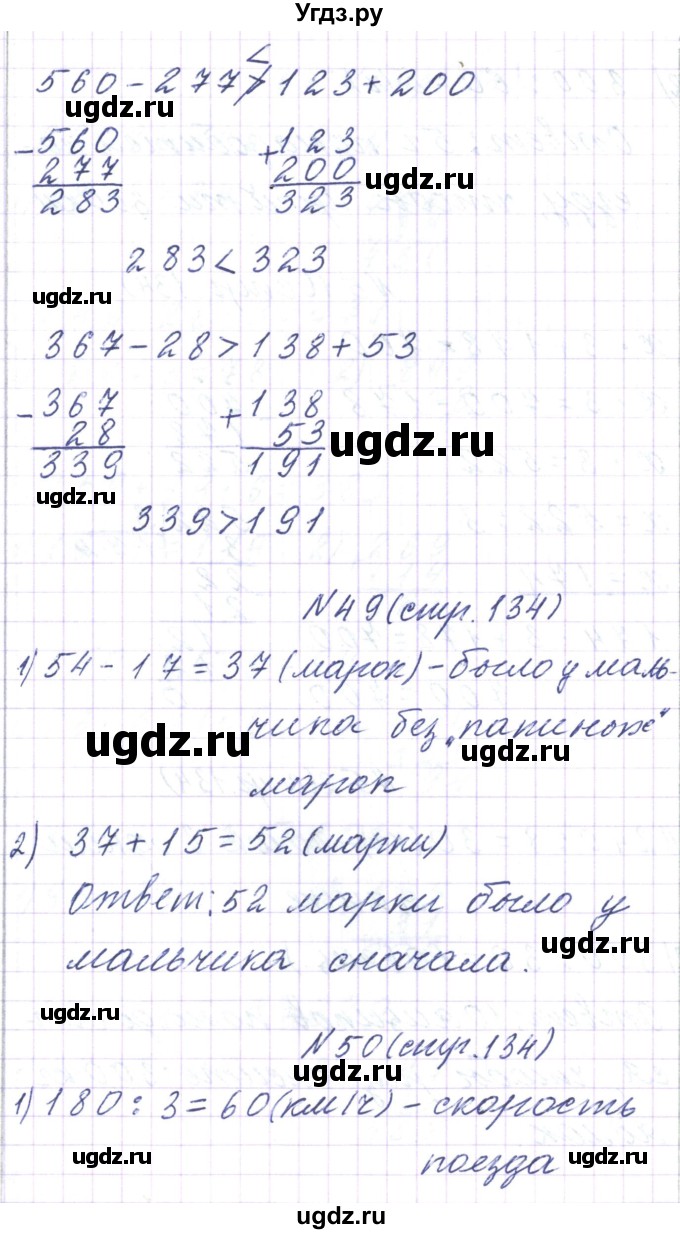 Угдз.ру
<
560 - 277 > 123 + 200
ugdz.ru
- 560 + 123
277 200 ugdz.ru
283 323
283 < 323
ugdz.ru
367 - 28 > 138 + 53
- 367 + 138
28 53 ugdz.ru
339 191
ugdz.ru
339 > 191
N49 (стр. 134)
1) 54 - 17 = 37 (марок) - было у маль-
ugdz.ru чика без „папиных"
ugdz.ru
марок
2) 37 + 15 = 52 (марки)
Ответ: 52 марки было у
ugdz.ru
мальчика сначала.
ugdz.ru
N50 (стр. 134)
ugdz.ru
1) 180 : 3 = 60 (км/ч) - скорость
поезда
ugdz.ru ugdz.ru
ugdz.ru